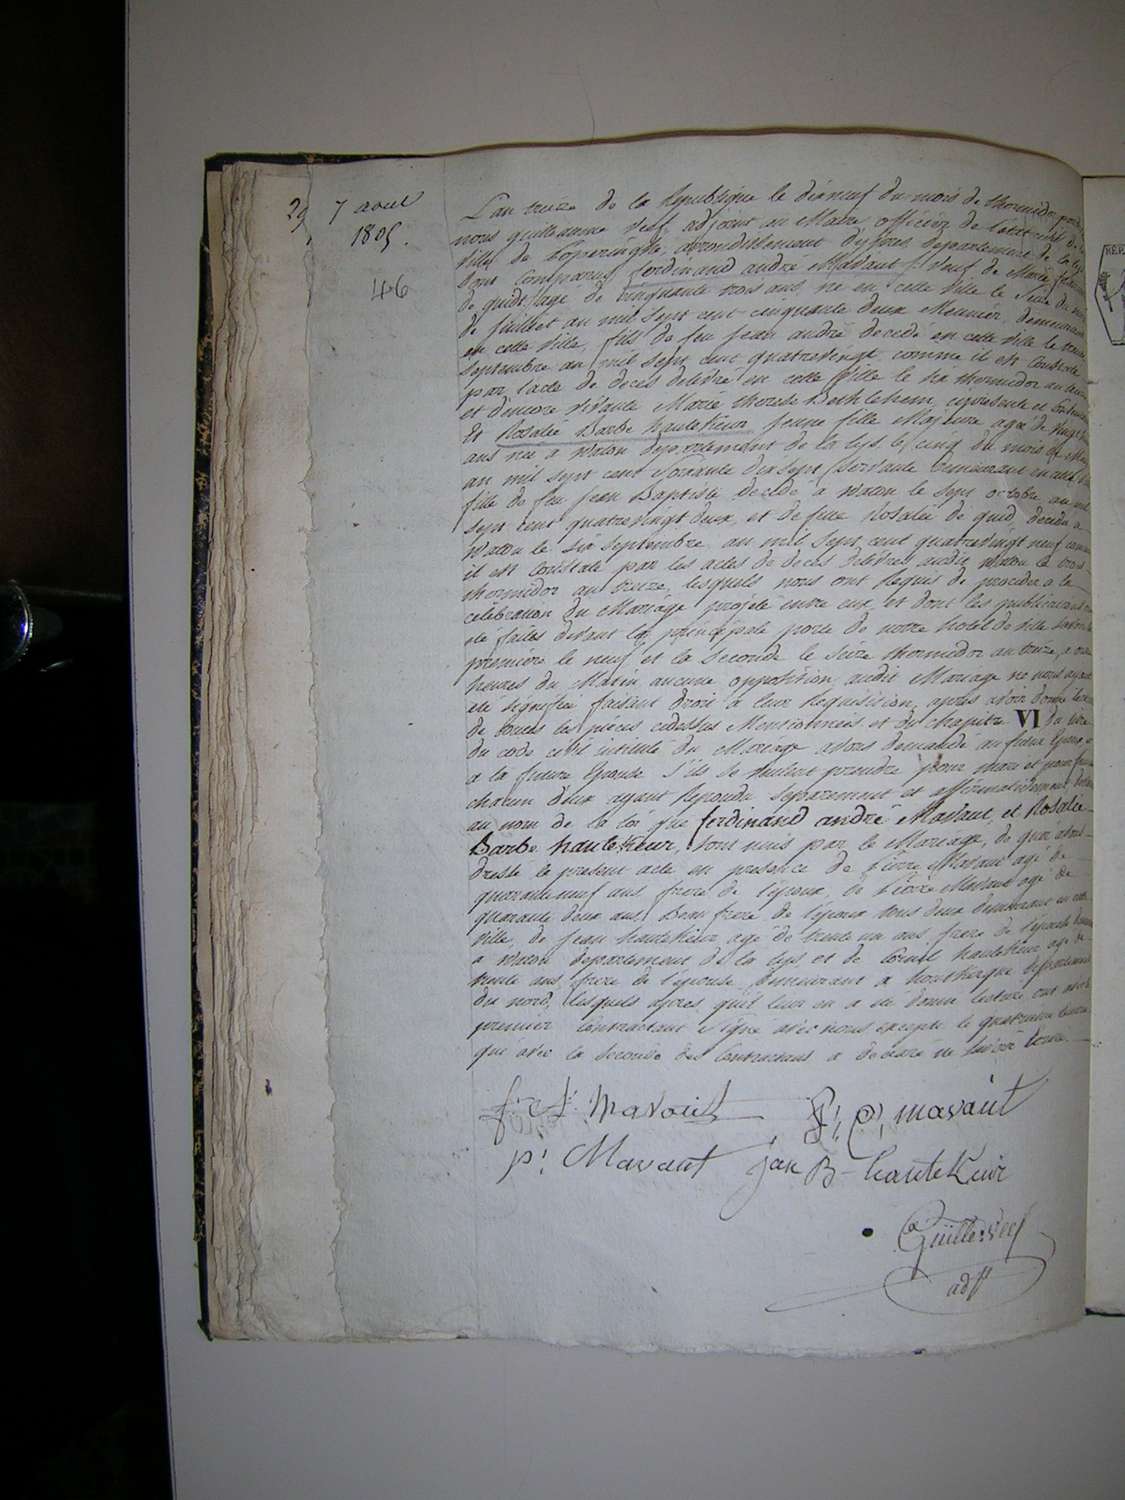 29
7 aout
1805.
46
L'an treize de la Republique le dixneuf du mois de thermidor pardevant
nous guillaume Vesf adjoint au Maire officier de l'etat civil de la
Ville de Poperinghe, arrondissement d'ypres, departement de la Lys
sont comparus ferdinand andré Mavaut, Veuf de Marie
de quidt, age de cinquante trois ans, né en cette Ville le seize du mois
de juillet an mil sept cent cinquante deux Meunier, demeurant
en cette Ville, fils de feu jean andré decedé en cette ville le trente
septembre an mil sept cent quatrevingt, comme il est constaté
par l'acte de deces delivré en cette Ville le six thermidor an treize
et d'encore vivante Marie therese Bethlehem, cipresente et consentante
Et Rosalie Barbe hautekeur, jeune fille Majeure agé de vingt
ans née a Watou departement de la Lys le cinq du mois de
an mil sept cent soixante dix sept, servante demeurant en cette Ville
fille de feu jean Baptiste decedé a Watou le sept octobre an mil
sept cent quatrevingt deux, et de feue Rosalie de quid, decedée a
Watou le six septembre an mil sept cent quatrevingt neuf comme
il est constaté par les actes de deces delivrés audit Watou le trois
thermidor an treize, lesquels nous ont requis de proceder a la
celebration du Mariage projeté entre eux, et dont les publications ont
eté faites devant la principale porte de notre hotel de Ville savoir la
premiere le neuf et la seconde le seize thermidor an treize, a onze
heures du Matin, aucune opposition audit Mariage ne nous ayant
eté signifiée faisant droit a leur requisition, apres avoir donné lecture
de toutes les pièces cidessus Mentionnées et du chapitre VI du titre
du code civil intitulé du Mariage avons demandé au futur Epoux et
a la future Epouse s'ils se veulent prendre pour Mari et pour femme
chacun d'eux ayant repondu separement et affirmativement, declarons
au nom de la loi que ferdinand andré Mavaut, et Rosalie
Barbe hautekeur, sont unis par le Mariage, de quoi avons
dressé le present acte en presence de Pierre Mavaut agé de
quaranteneuf ans, frere de l'epoux, de Pierre Mavaut agé de
quarante deux ans, Beau frere de l'epoux tous deux demeurant en cette
Ville, de jean hautekeur agé de trente un ans, frere de l'epouse demeurant
a Watou departement de la Lys et de hautekeur agé de
trente ans, frere de l'epouse, demeurant a houtkerque departement
du nord, lesquels apres qu'il leur en a eté donné lecture, ont avec le
premier Contractant signé avec nous, excepté le quatrieme temoin
qui avec la seconde des Contractans a declaré ne savoir ecrire.
f: A: Mavaut
P: C: mavaut
p: Mavaut
jan B- hautekeur
Guille: Vesf
adjt